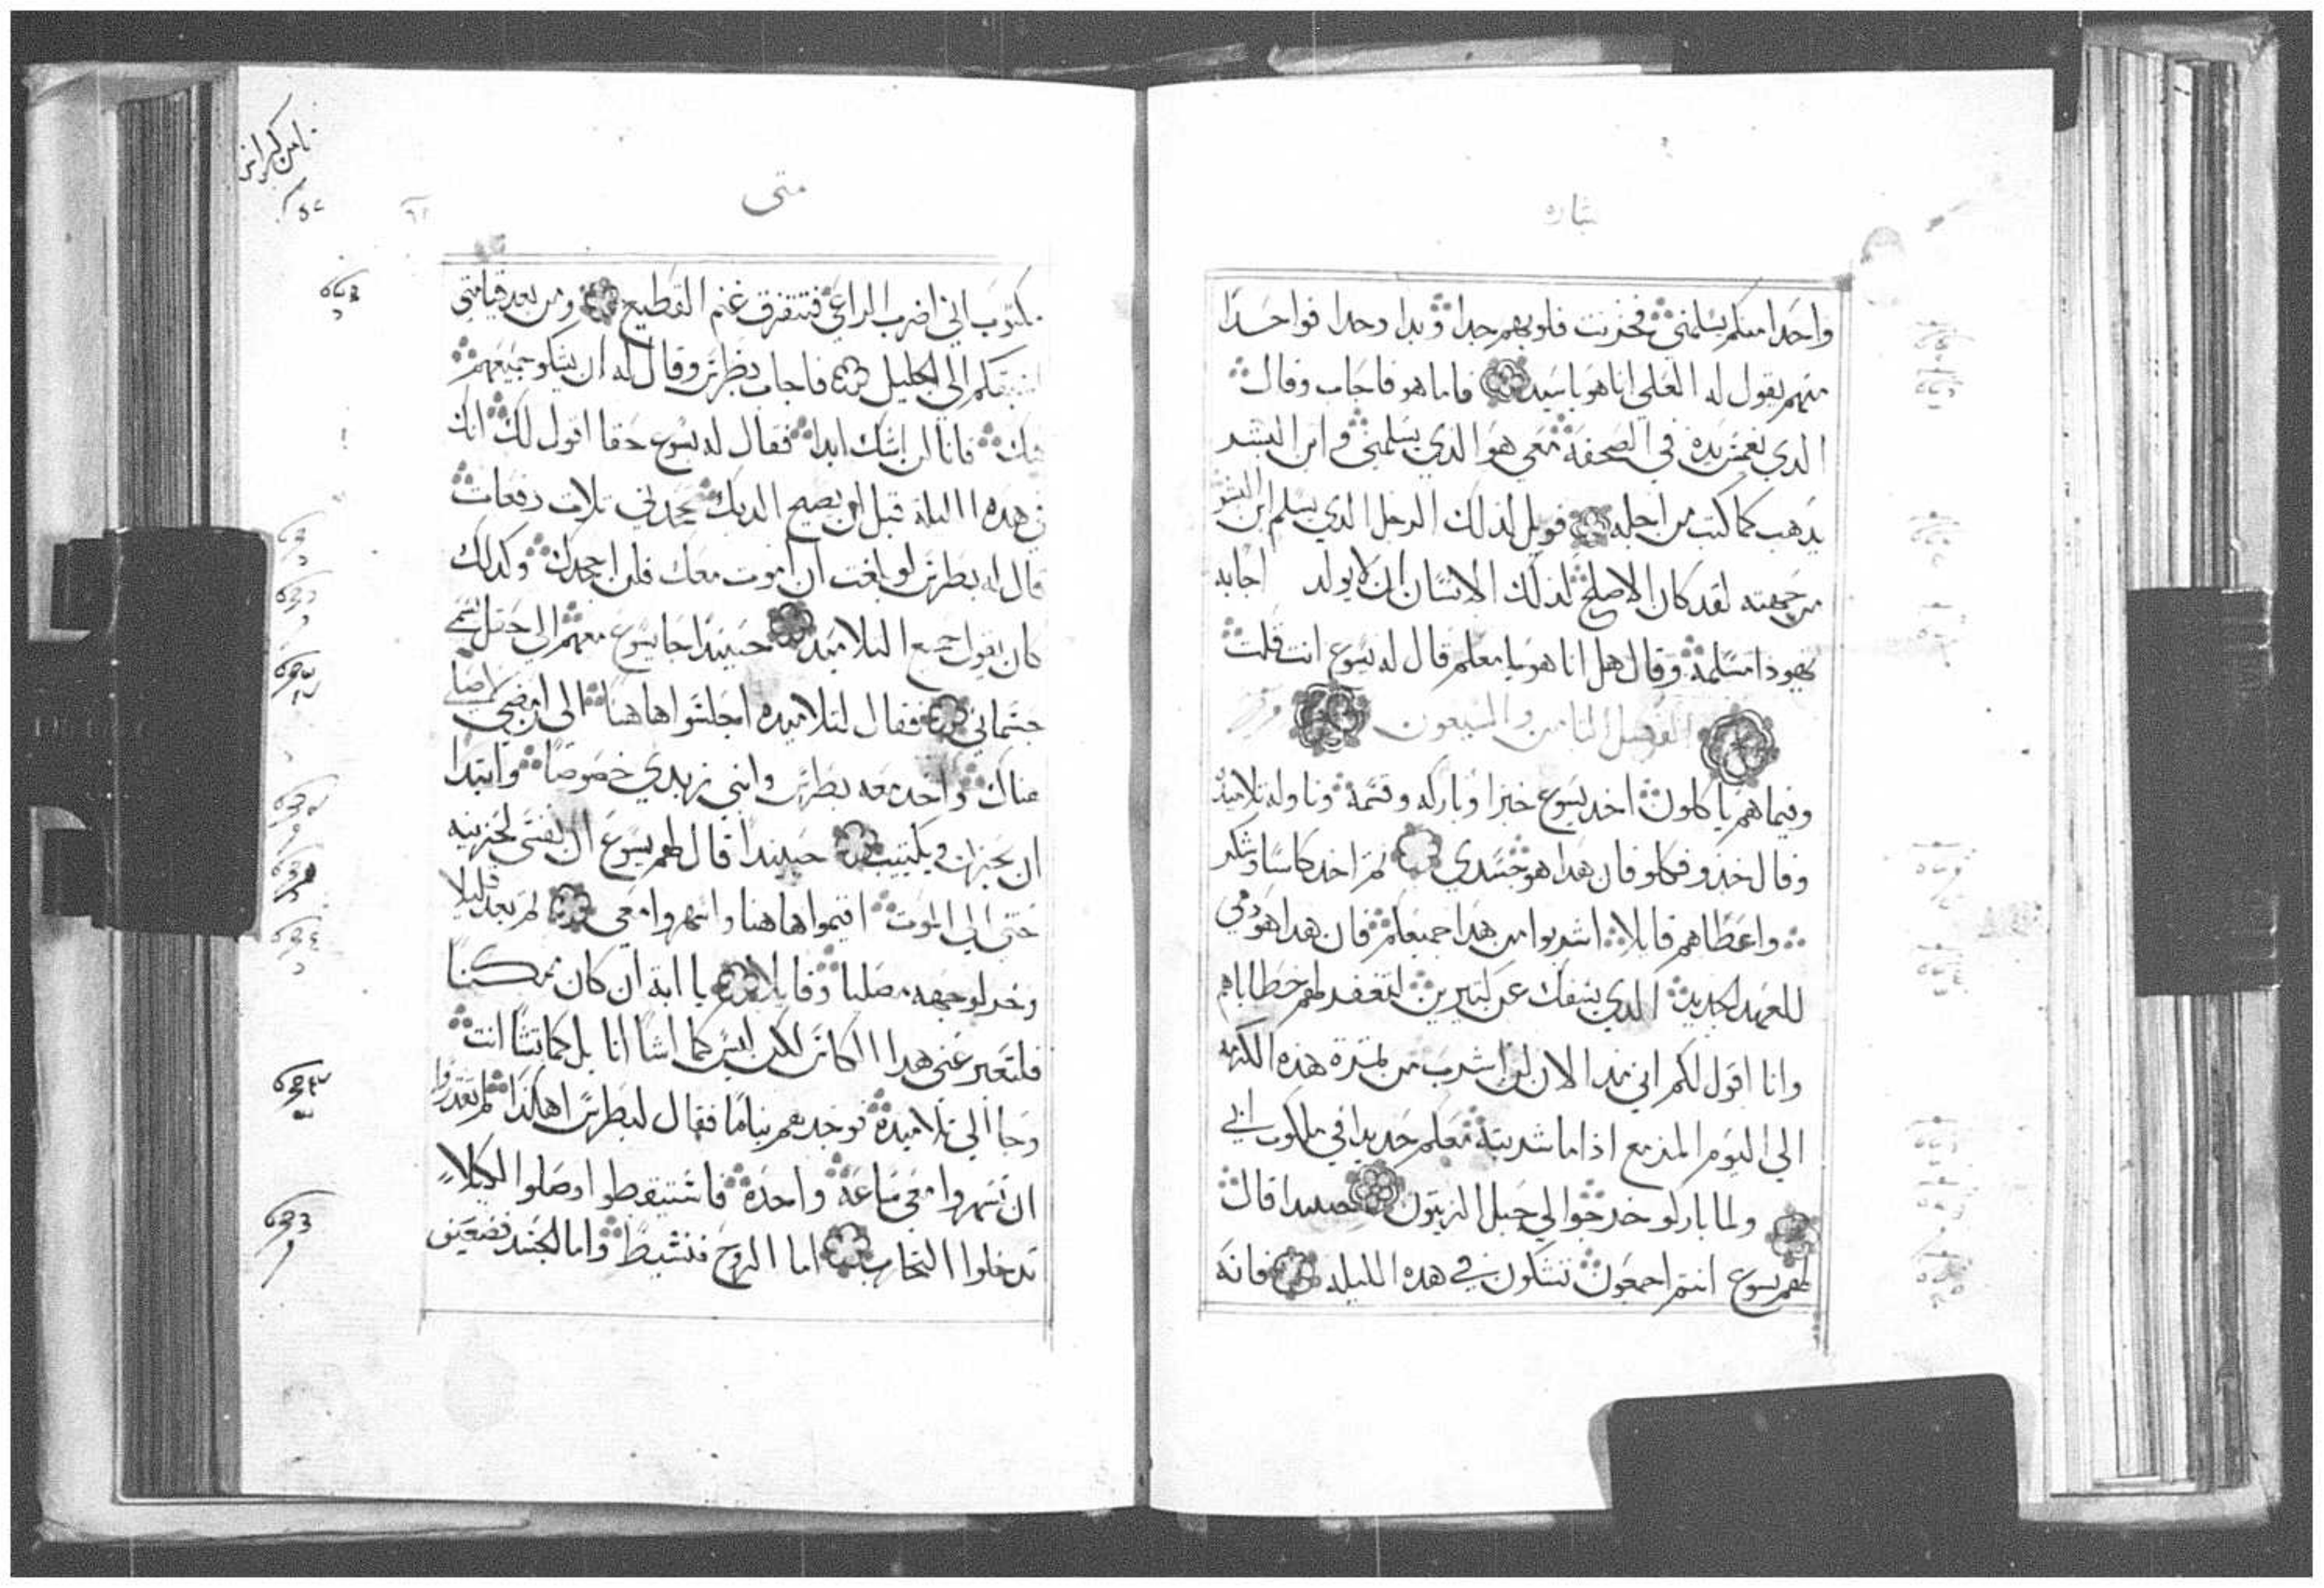 بشاره
واحدا منكم يسلمني فحزنت قلوبهم جدا وبدا وحدا فواحدا
منهم يقول له العلي انا هو يا سيد فاما هو فاجاب وقال
الدي يغمس يده في الصحفة معي هو الذي يسلمني وابن البشر
يدهب كما كتب من اجله فويل لذلك الرجل الدي يسلم ابن البشر
من جهته لقد كان الاصلح لذلك الانسان ان لا يولد اجابه
يهودا مسلمه وقال هل انا هو يا معلم قال له يسوع انت قلت
الفصل الثامن والسبعون
وفيما هم ياكلون اخد يسوع خبزا وباركه وقسمه وناوله تلاميذه
وقال خذو فكلو فان هدا هو جسدي ثم اخد كاسا وشكر
واعطاهم قايلا اشربوا من هدا جميعكم فان هدا هو دمي
للعهد الجديد الدي يسفك عن كثيرين لتغفر لهم خطاياهم
وانا اقول لكم اني مند الان لن اشرب من ثمرة هذه الكرمه
الي اليوم المزمع اذا ما شربته معكم جديدا في ملكوت ابي
ولما باركو خرجوا الي جبل الزيتون حينيدا قال
لهم يسوع انتم اجمعون تشكون في هده الليله فانه
متى
مكتوب اني اضرب الراعي فتتفرق غنم القطيع ومن بعد قيامتي
اسبقكم الى الجليل فاجاب بطرس وقال له ان يشكو جميعهم
فيك فانا لن اشك ابدا فقال له يسوع حقا اقول لك انك
في هده الليلة قبل ان يصيح الديك تجحدني تلات دفعات
قال له بطرس لو بلغت ان اموت معك فلن اجحدك وكدلك
كان يقول جميع التلاميد حينيدا جا يسوع معهم الي حقل يسمي
جتماني فقال لتلاميده اجلسوا هاهنا الى ان امضي لاصلي
هناك واخد معه بطرس وابني زبدي خصوصا وابتدا
ان يحزن ويكتيب حينيدا قال لهم يسوع ان نفسي لحزينه
حتى الي الموت اقيموا هاهنا واسهروا معي ثم بعد قليلا
وخر لوجهه مصليا وقايلا يا ابة ان كان ممكنا
فلتعبر عني هدا الكاس لكن ليس كما اشا انا بل كما تشا انت
وجا الي تلاميده فوجدهم نياما فقال لبطرس اهكذا لم تقدروا
ان تسهروا معي ساعة واحدة فاستيقظوا وصلوا لكيلا
تدخلوا التجارب اما الروح فنشيط واما الجسد فضعيف